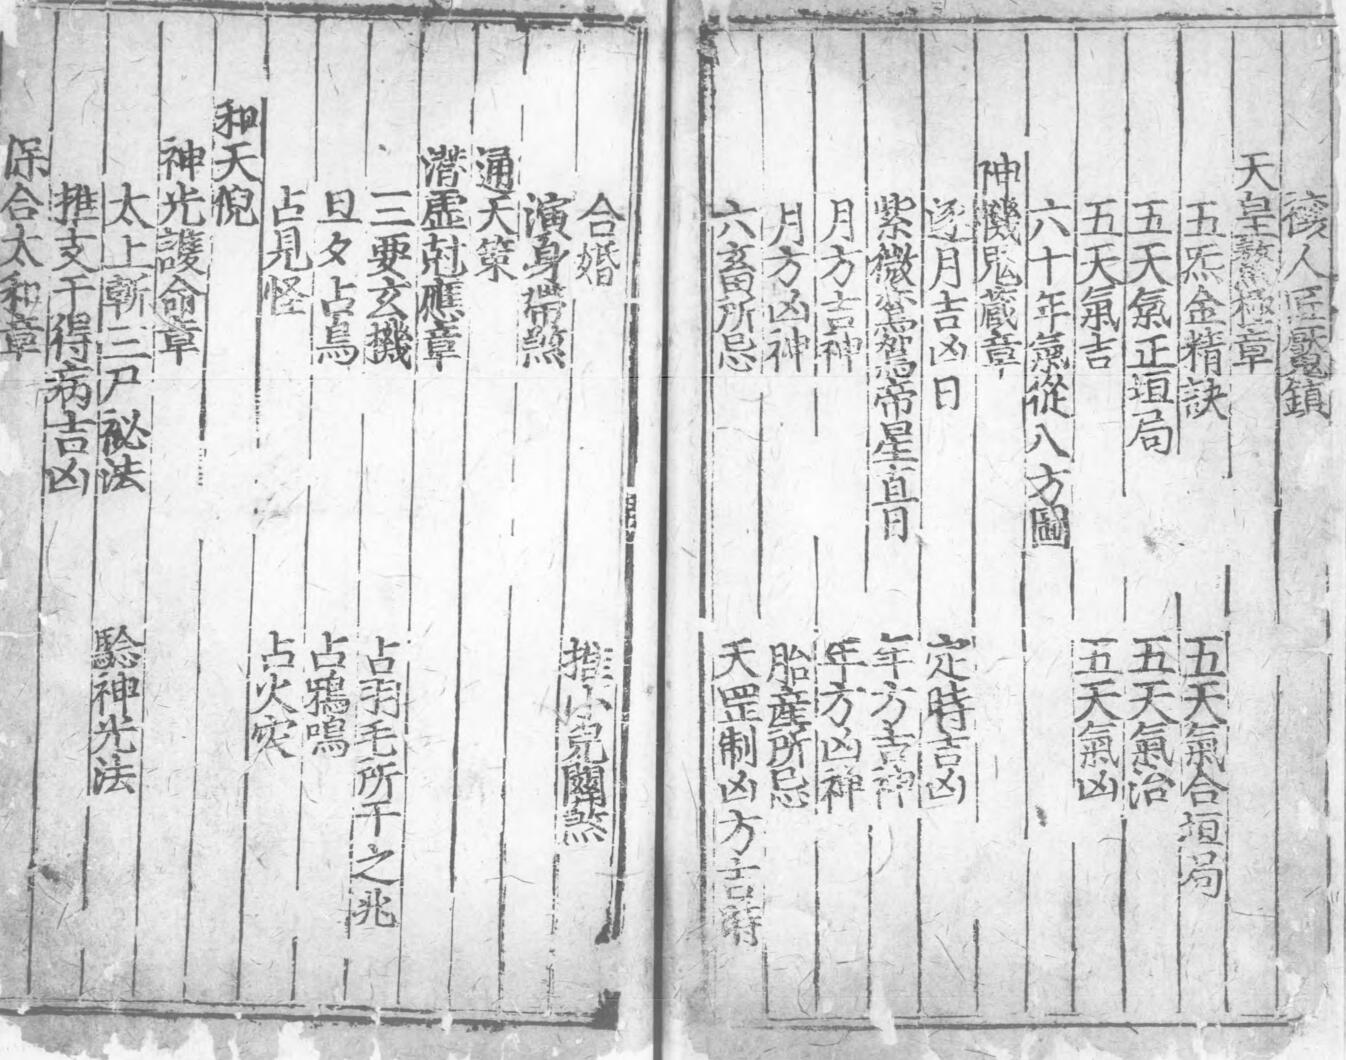 禳人匠魘鎮
天皇鰲極章
五炁金精訣　五天氣合垣局
五天氣正垣局　五天氣治
五天氣吉　五天氣凶
六十年氣從八方圖
神機鬼藏章
逐月吉凶日　定時吉凶
紫微鸞駕帝星直日　年方吉神
月方吉神　年方凶神
月方凶神　胎產所忌
六畜所忌　天罡制凶方吉時
合婚　推小兒關煞
演身帶煞
通天策
潛虛尅應章
三要玄機　占羽毛所干之兆
旦夕占烏　占鴉鳴
占見怪　占火灾
和天倪
神光護命章
太上斬三尸祕法　驗神光法
推支干得病吉凶
保合太和章